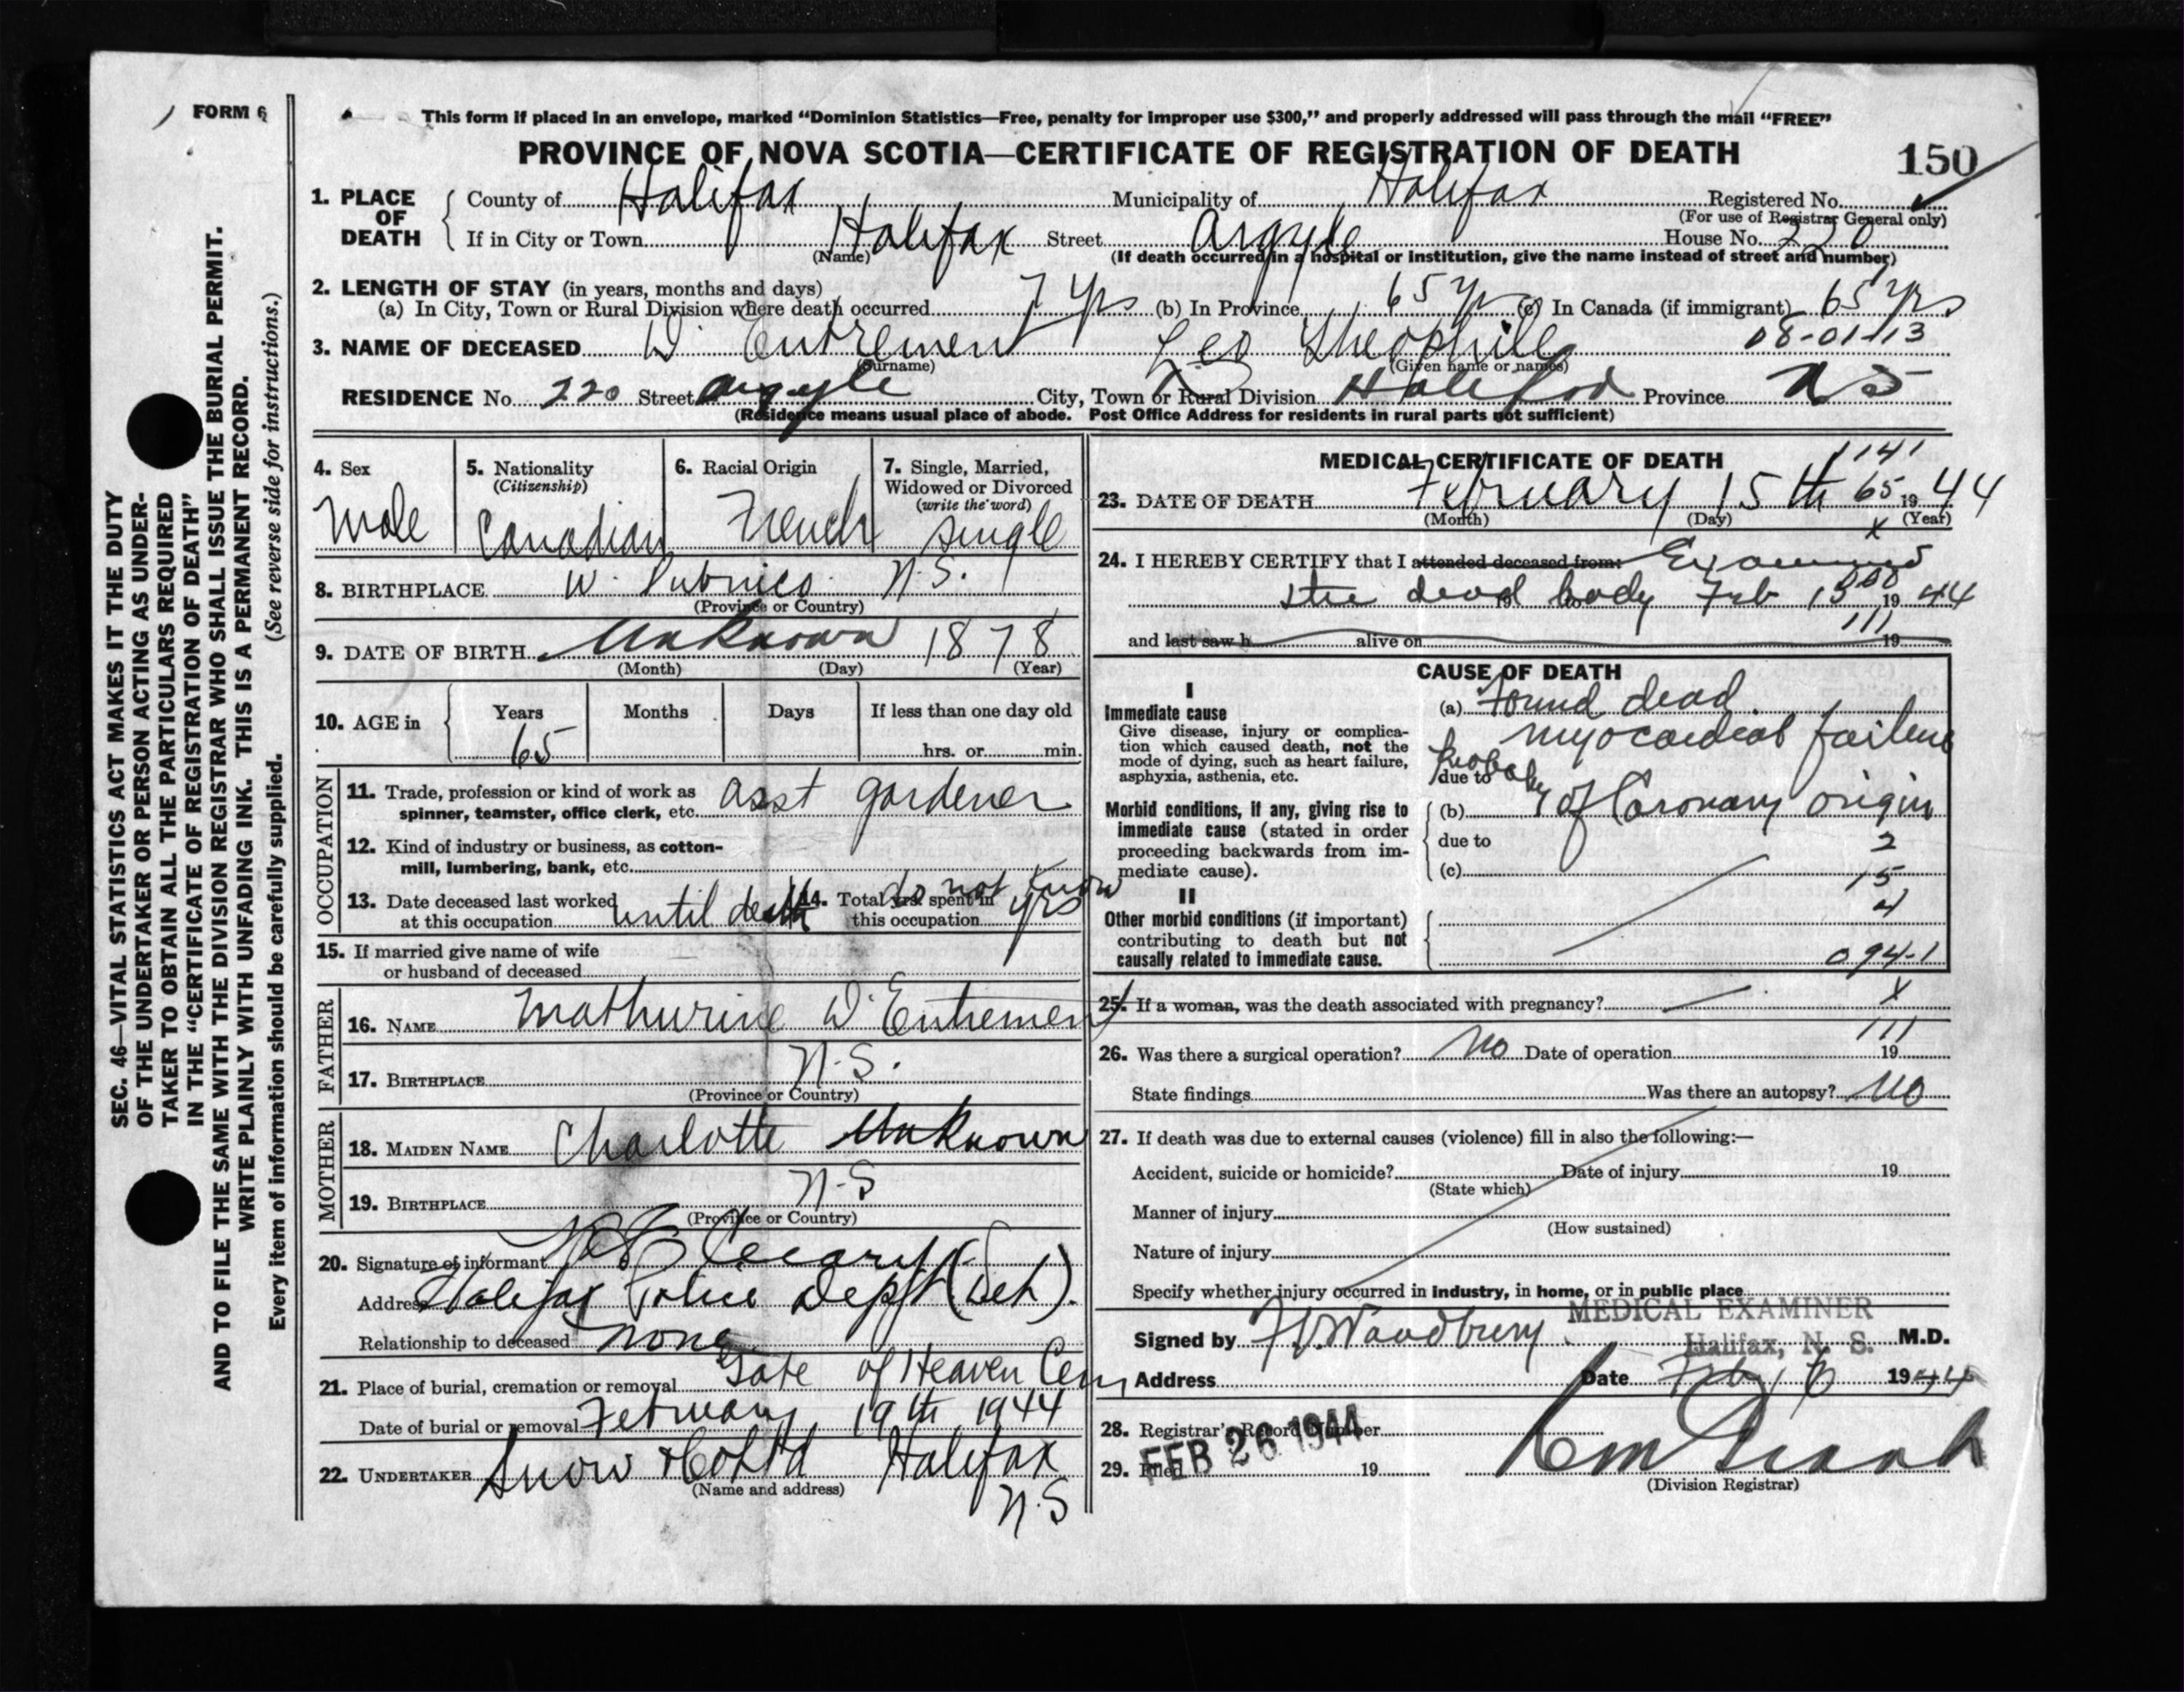 FORM 6
This form if placed in an envelope, marked “Dominion Statistics—Free, penalty for improper use $300,” and properly addressed will pass through the mail “FREE”
PROVINCE OF NOVA SCOTIA—CERTIFICATE OF REGISTRATION OF DEATH
150
1. PLACE OF DEATH County of Halifax Municipality of Halifax Registered No.
(For use of Registrar General only)
If in City or Town Halifax Street Argyle House No. 220
(Name) (If death occurred in a hospital or institution, give the name instead of street and number)
2. LENGTH OF STAY (in years, months and days)
(a) In City, Town or Rural Division where death occurred 7 yrs (b) In Province 65 yrs (c) In Canada (if immigrant) 65 yrs
3. NAME OF DECEASED D'Entremont Leo Theophile 08-01-13
(Surname) (Given name or names)
RESIDENCE No. 220 Street Argyle City, Town or Rural Division Halifax Province N S
(Residence means usual place of abode. Post Office Address for residents in rural parts not sufficient)
SEC. 46—VITAL STATISTICS ACT MAKES IT THE DUTY
OF THE UNDERTAKER OR PERSON ACTING AS UNDER-
TAKER TO OBTAIN ALL THE PARTICULARS REQUIRED
IN THE “CERTIFICATE OF REGISTRATION OF DEATH”
AND TO FILE THE SAME WITH THE DIVISION REGISTRAR WHO SHALL ISSUE THE BURIAL PERMIT.
WRITE PLAINLY WITH UNFADING INK. THIS IS A PERMANENT RECORD.
Every item of information should be carefully supplied. (See reverse side for instructions.)
4. Sex 5. Nationality 6. Racial Origin 7. Single, Married,
(Citizenship) Widowed or Divorced
(write the word)
Male Canadian French single
8. BIRTHPLACE W. Pubnico N.S.
(Province or Country)
9. DATE OF BIRTH Unknown 1878
(Month) (Day) (Year)
10. AGE in Years Months Days If less than one day old
65 hrs. or min.
OCCUPATION
11. Trade, profession or kind of work as asst gardener
spinner, teamster, office clerk, etc.
12. Kind of industry or business, as cotton-
mill, lumbering, bank, etc.
13. Date deceased last worked 14. Total yrs. spent in do not know
at this occupation until death this occupation yrs
15. If married give name of wife
or husband of deceased
FATHER
16. NAME Mathurine D'Entremont
17. BIRTHPLACE N.S.
(Province or Country)
MOTHER
18. MAIDEN NAME Charlotte Unknown
19. BIRTHPLACE N-S
(Province or Country)
20. Signature of informant
Address Halifax Police Dept (Det).
Relationship to deceased none
21. Place of burial, cremation or removal Gate of Heaven Cem
Date of burial or removal February 19th 1944
22. UNDERTAKER Snow & Co Ltd Halifax
(Name and address)
N.S
MEDICAL CERTIFICATE OF DEATH
1141
23. DATE OF DEATH February 15th 65 1944
(Month) (Day) (Year)
x
24. I HEREBY CERTIFY that I attended deceased from: Examined
the dead body Feb 15 1944
111
and last saw h alive on 19
CAUSE OF DEATH
I
Immediate cause (a) Found dead
Give disease, injury or complica- myocardial failure
tion which caused death, not the
mode of dying, such as heart failure, Probably
asphyxia, asthenia, etc. due to
Morbid conditions, if any, giving rise to (b) of Coronary origin
immediate cause (stated in order due to 2
proceeding backwards from im-
mediate cause). (c) 15
II 4
Other morbid conditions (if important)
contributing to death but not
causally related to immediate cause. 094-1
25. If a woman, was the death associated with pregnancy? x
111
26. Was there a surgical operation? No Date of operation 19
State findings Was there an autopsy? No
27. If death was due to external causes (violence) fill in also the following:—
Accident, suicide or homicide? Date of injury 19
(State which)
Manner of injury
(How sustained)
Nature of injury
Specify whether injury occurred in industry, in home, or in public place
MEDICAL EXAMINER
Signed by F V Woodbury Halifax, N. S. M.D.
Address Date Feb 16 1944
28. Registrar's Record Number
FEB 26 1944
29. Filed 19
(Division Registrar)